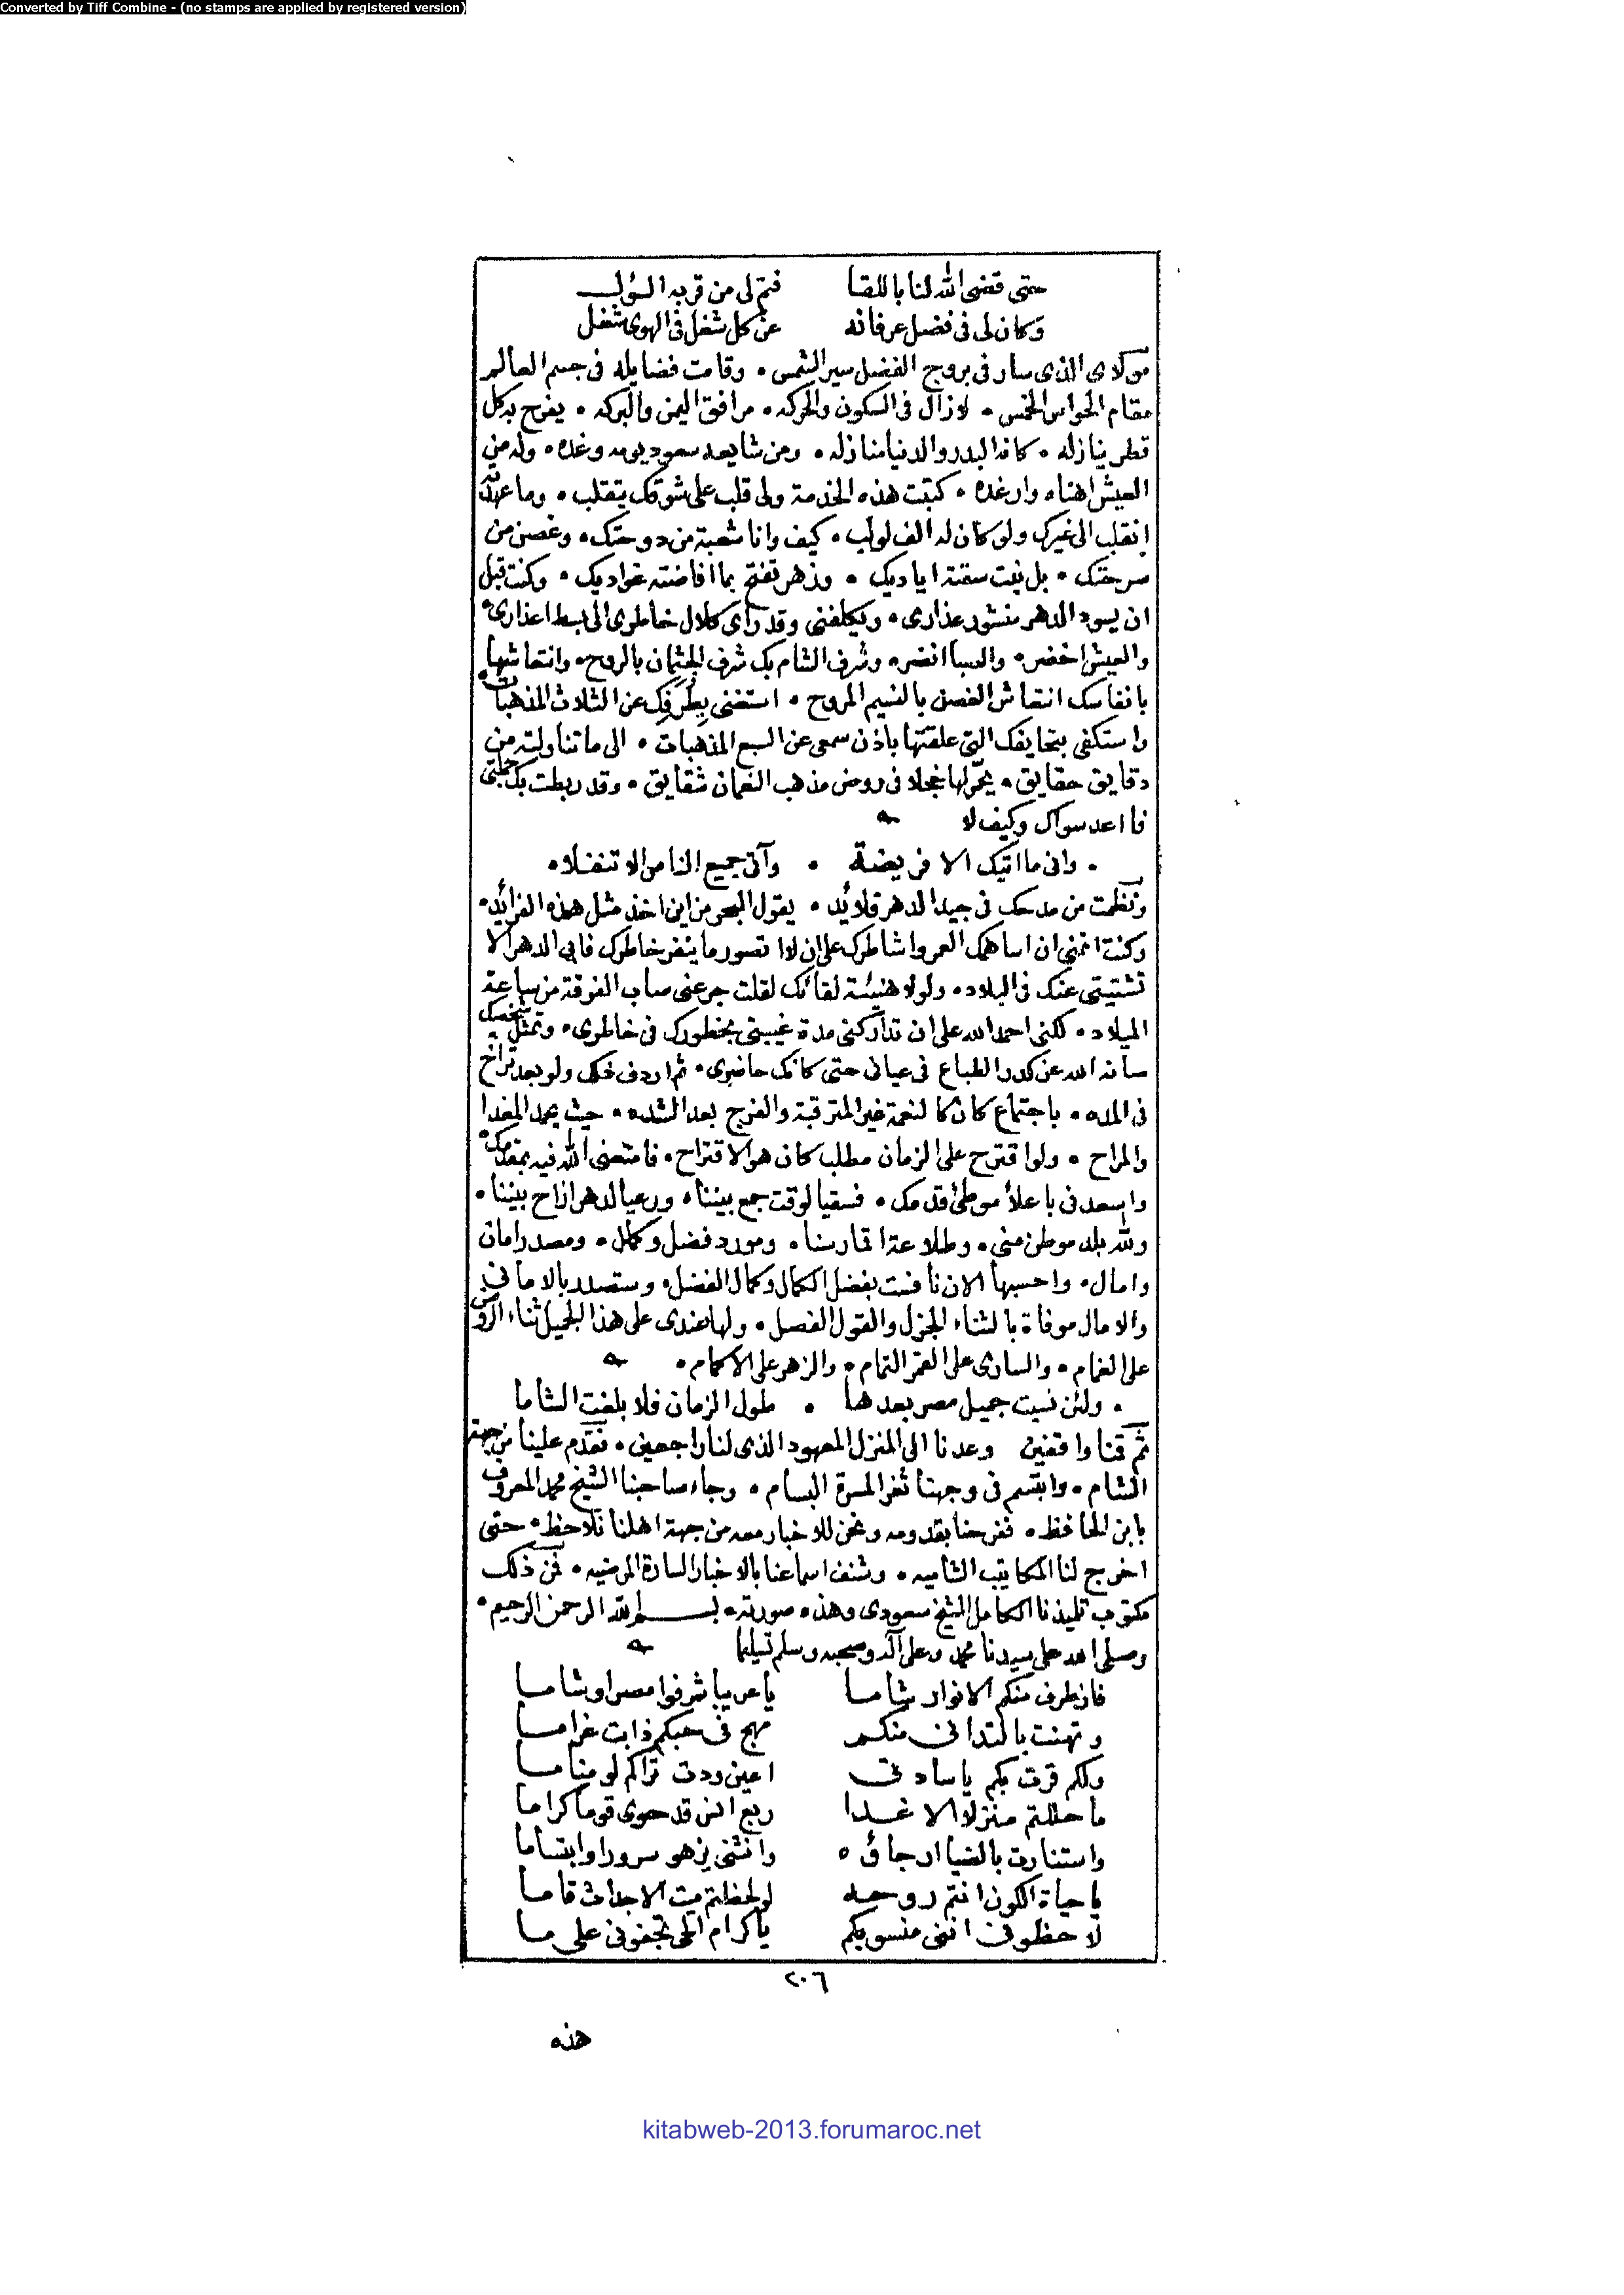 Converted by Tiff Combine - (no stamps are applied by registered version)
حتى قضى الله لنا باللقا فتم لى من قربه السؤل
وكان لى فى فضل عرفانه عن كل شغل فى الهوى شغل
مولاى الذى سار فى بروج الفضل سير الشمس • وقامت فضايله فى جسم العالم
مقام الحواس الخمس • لازال فى السكون والحركه • مرافق اليمن والبركه • يفرح به كل
قطر ينازله • كانه البدر والدنيا منازله • ومن شايعه سعود يومه وغده • وله من
العيش اهناه وارغده • كتبت هذه الخدمة ولى قلب على شوقك يتقلب • وما عهدته
انقلب الى غيرك ولو كان له الف لولب • كيف وانا شعبة من دوحتك • وغصن من
سرحتك • بل نبت سقته اياديك • وزهر تفتح بما افاضته غواديك • وكنت قبل
ان يسود الدهر منشور عذارى • ويكلفنى وقد راى كلال خاطرى الى بسط اعذارى •
والعيش اخضر • والصبا انضر • وشرف الشام بك شرف الجثمان بالروح • وانتعاشها
بانفاسك انتعاش الغصن بالنسيم المروح • استغنى بطرفك عن الثلاث المذهبات
واستكفى بتحايفك التى علقتها باذن سمعى عن السبع المذهبات • الى ما تناولته من
دقايق حقايق • يحمر لها خجلا فى روض مذهب النعمان شقايق • وقد ربطت بك جملتى
فما اعد سواك وكيف لا
• وانى ما اتيك الا فريضة • وآتى جميع الناس الا تنفلا •
ونظمت من مدحك فى جيد الدهر قلائد • يقول البحر من اين اخذ مثل هذه الفرائد •
وكنت اتمنى ان اساهمك العمر واشاطرك على ان لا تصور ما ينفر خاطرك فابى الدهر الا
تشتيتى عنك فى البلاد • ولولا هنيئة لقائك لقلت جرعنى صاب الفرقة من ساعة
الميلاد • لكنى احمد الله على ان تداركنى مدة غيبتى بخطورك فى خاطرى • وتمثل شخصك
صانه الله عن كدر الطباع فى عيانى حتى كانك حاضرى • ثم اردف ذلك ولو بعد تراخ
فى المده • باجتماع كان كالنعمة غير المترقبة والفرج بعد الشده • حيث يحمد المغدا
والمراح • ولو اقترح على الزمان مطلب كان هو الاقتراح • فامتعنى الله فيه بمقدمك •
واسعدنى باعلا موطئ قدمك • فسقيا لوقت جمع بيننا • ورعيا لدهر ازاح بيننا •
ولله بلد موطن منى • وطلاعة اقمار سنا • ومورد فضل وكمال • ومصدر امان
وامال • واحسبها الان نافست بفضل الكمال وكمال الفضل • وستصدر بالامانى
والامال موفاة بالثناء الجزل والقول الفصل • ولها عندى على هذا الجميل ثناء الروض
على الغمام • والسارى على القمر التمام • والزهر على الاكمام •
• ولئن نسيت جميل مصر بعدها • طول الزمان فلا بلغت الشاما
ثم قمنا واقفين وعدنا الى المنزل المعهود الذى لنا راجعين • فقدم علينا من جهة
الشام • وابتسم فى وجهنا ثغر المسرة البسام • وجاء صاحبنا الشيخ محمد المعروف
بابن الحافظ • ففرحنا بقدومه ونحن للاخبار معه من جهة اهلنا نلاحظ • حتى
اخرج لنا المكاتيب الشاميه • وشنف اسماعنا بالاخبار السارة المرضيه • فمن ذلك
مكتوب تلميذنا الكامل الشيخ سعودى وهذه صورته • بسم الله الرحمن الرحيم •
وصلى الله على سيدنا محمد وعلى آله وصحبه وسلم تسليما
فاز طرف منكم الانوار شاما يا عريبا شرفوا مصرا وشاما
وتهنت بالتدانى منكم مهج فى حبكم ذابت غراما
ولكم قرت بكم ياسادتى اعين ودت تراكم لو مناما
ما حللتم منزلا الا غدا ربع انس قد حوى قوما كراما
واستنارت بالضيا ارجاؤه وانثنى يزهو سرورا وابتساما
يا حياة الكون انتم روحه لو لحظتم ميت الاجداث قاما
لاحظونى اننى منسوبكم يا كرام الحى تجفونى على ما
٢٠٦
هذه
kitabweb-2013.forumaroc.net